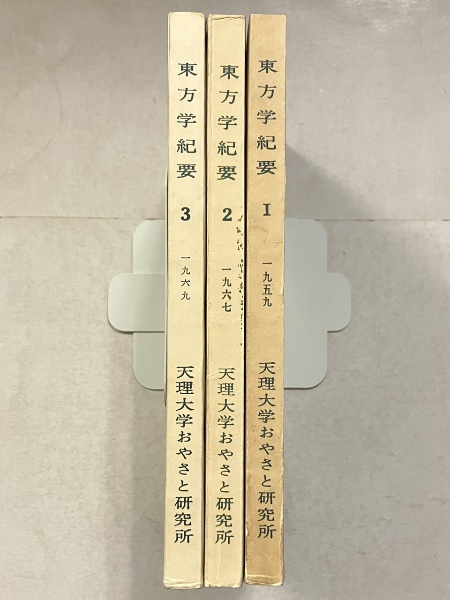 東方学紀要
3
一九六九
天理大学おやさと研究所
東方学紀要
2
一九六七
天理大学おやさと研究所
東方学紀要
I
一九五九
天理大学おやさと研究所